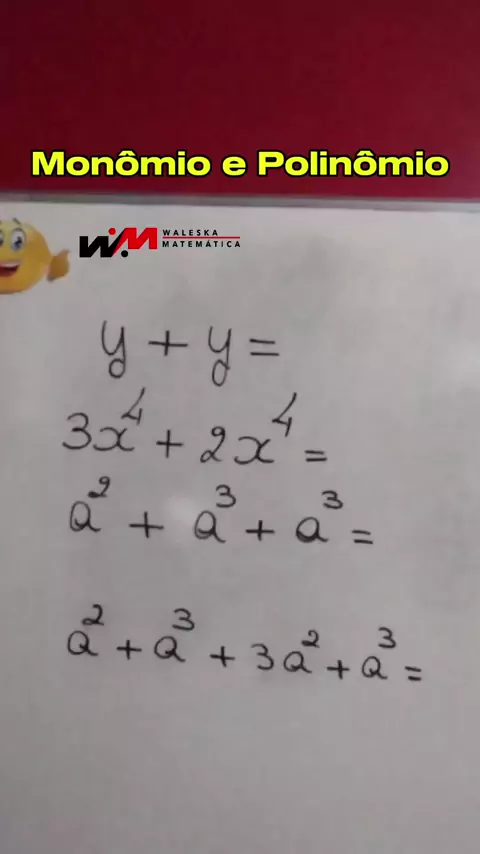 Monômio e Polinômio
W.M WALESKA
MATEMÁTICA
y + y =
3x⁴ + 2x⁴ =
a² + a³ + a³ =
a² + a³ + 3a² + a³ =